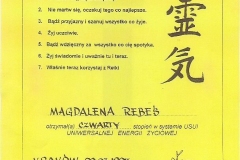 2. Nie martw się, oczekuj tego co najlepsze.
3. Bądź przyjazny i szanuj wszystko co żyje.
4. Żyj uczciwie.
5. Bądź wdzięczny za wszystko co cię spotyka.
6. Żyj świadomie i uważnie tu i teraz.
7. Właśnie teraz korzystaj z Reiki
靈
気
MAGDALENA REBEŚ
otrzymał(a) CZWARTY stopień w systemie USUI
UNIWERSALNEJ ENERGII ŻYCIOWEJ